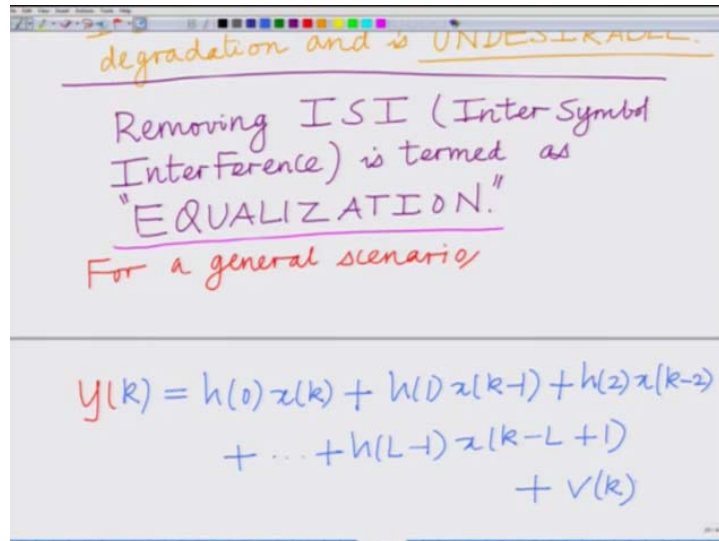 degradation and is UNDESIRABLE.
Removing ISI (Inter Symbol
Interference) is termed as
"EQUALIZATION."
For a general scenario,
y(k) = h(0)x(k) + h(1)x(k-1) + h(2)x(k-2)
+ ... + h(L-1)x(k-L+1)
+ v(k)